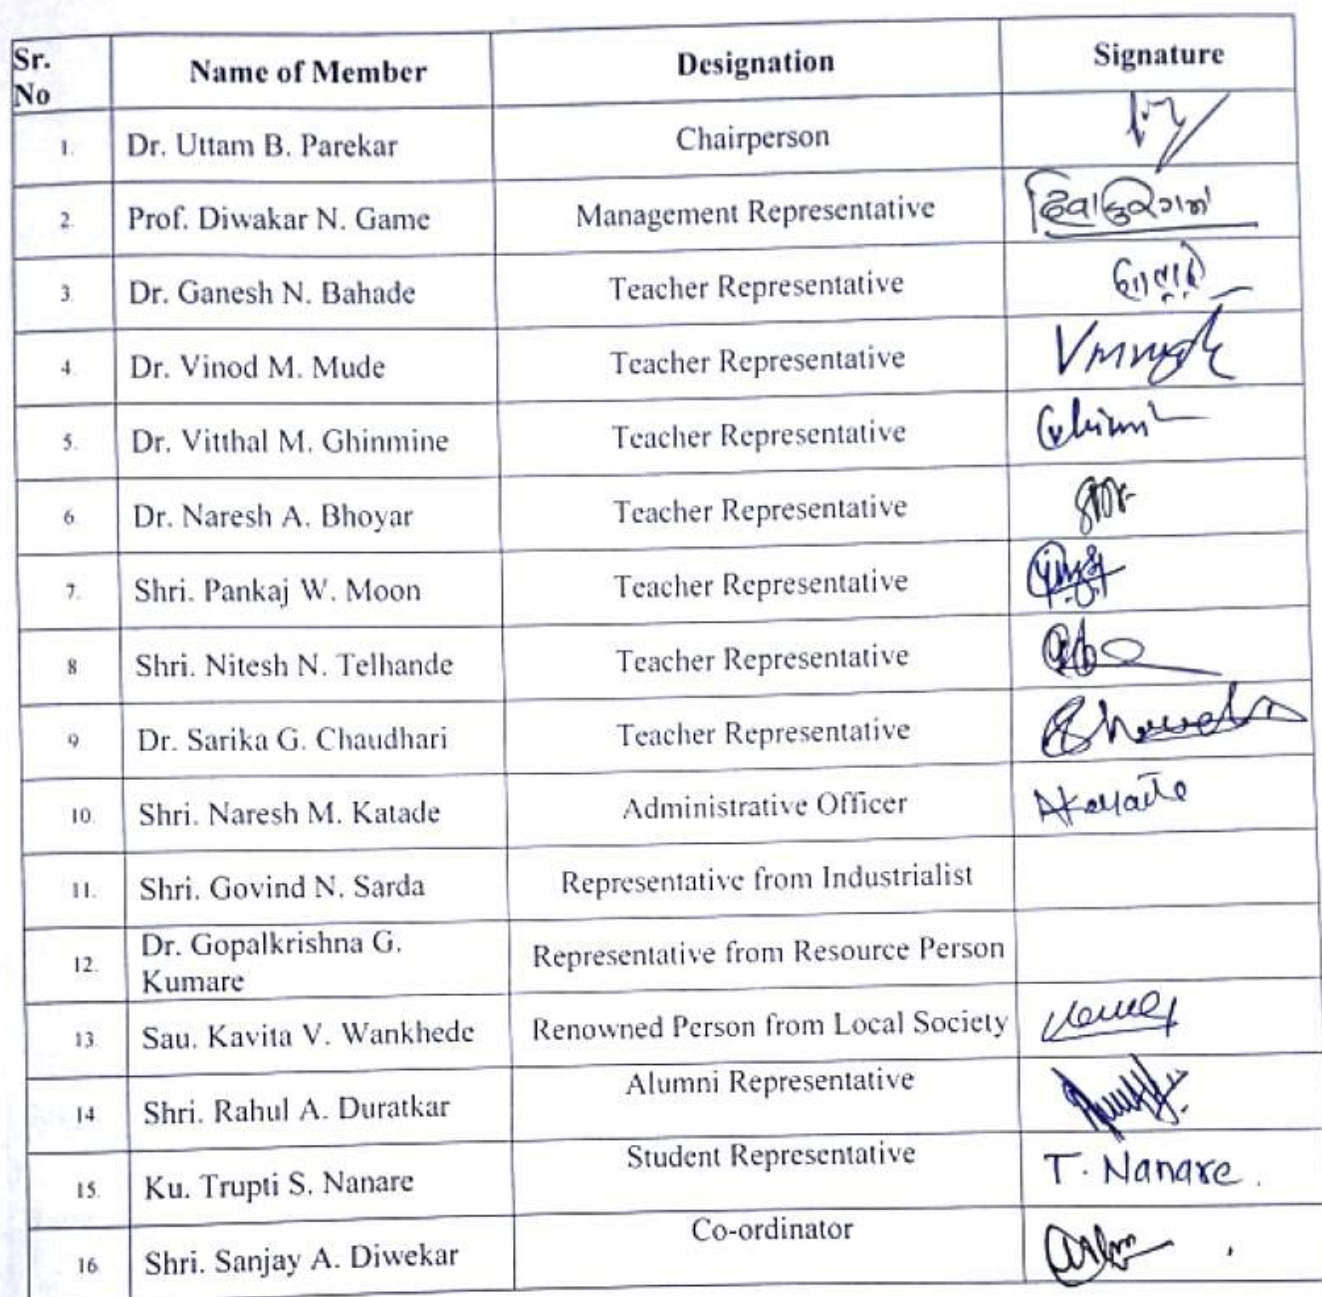 Sr. No Name of Member Designation Signature
1. Dr. Uttam B. Parekar Chairperson
2. Prof. Diwakar N. Game Management Representative
3. Dr. Ganesh N. Bahade Teacher Representative
4. Dr. Vinod M. Mude Teacher Representative
5. Dr. Vitthal M. Ghinmine Teacher Representative
6. Dr. Naresh A. Bhoyar Teacher Representative
7. Shri. Pankaj W. Moon Teacher Representative
8 Shri. Nitesh N. Telhande Teacher Representative
9 Dr. Sarika G. Chaudhari Teacher Representative
10. Shri. Naresh M. Katade Administrative Officer
11. Shri. Govind N. Sarda Representative from Industrialist
12. Dr. Gopalkrishna G. Kumare Representative from Resource Person
13. Sau. Kavita V. Wankhede Renowned Person from Local Society
14 Shri. Rahul A. Duratkar Alumni Representative
15. Ku. Trupti S. Nanare Student Representative T. Nanare.
16 Shri. Sanjay A. Diwekar Co-ordinator